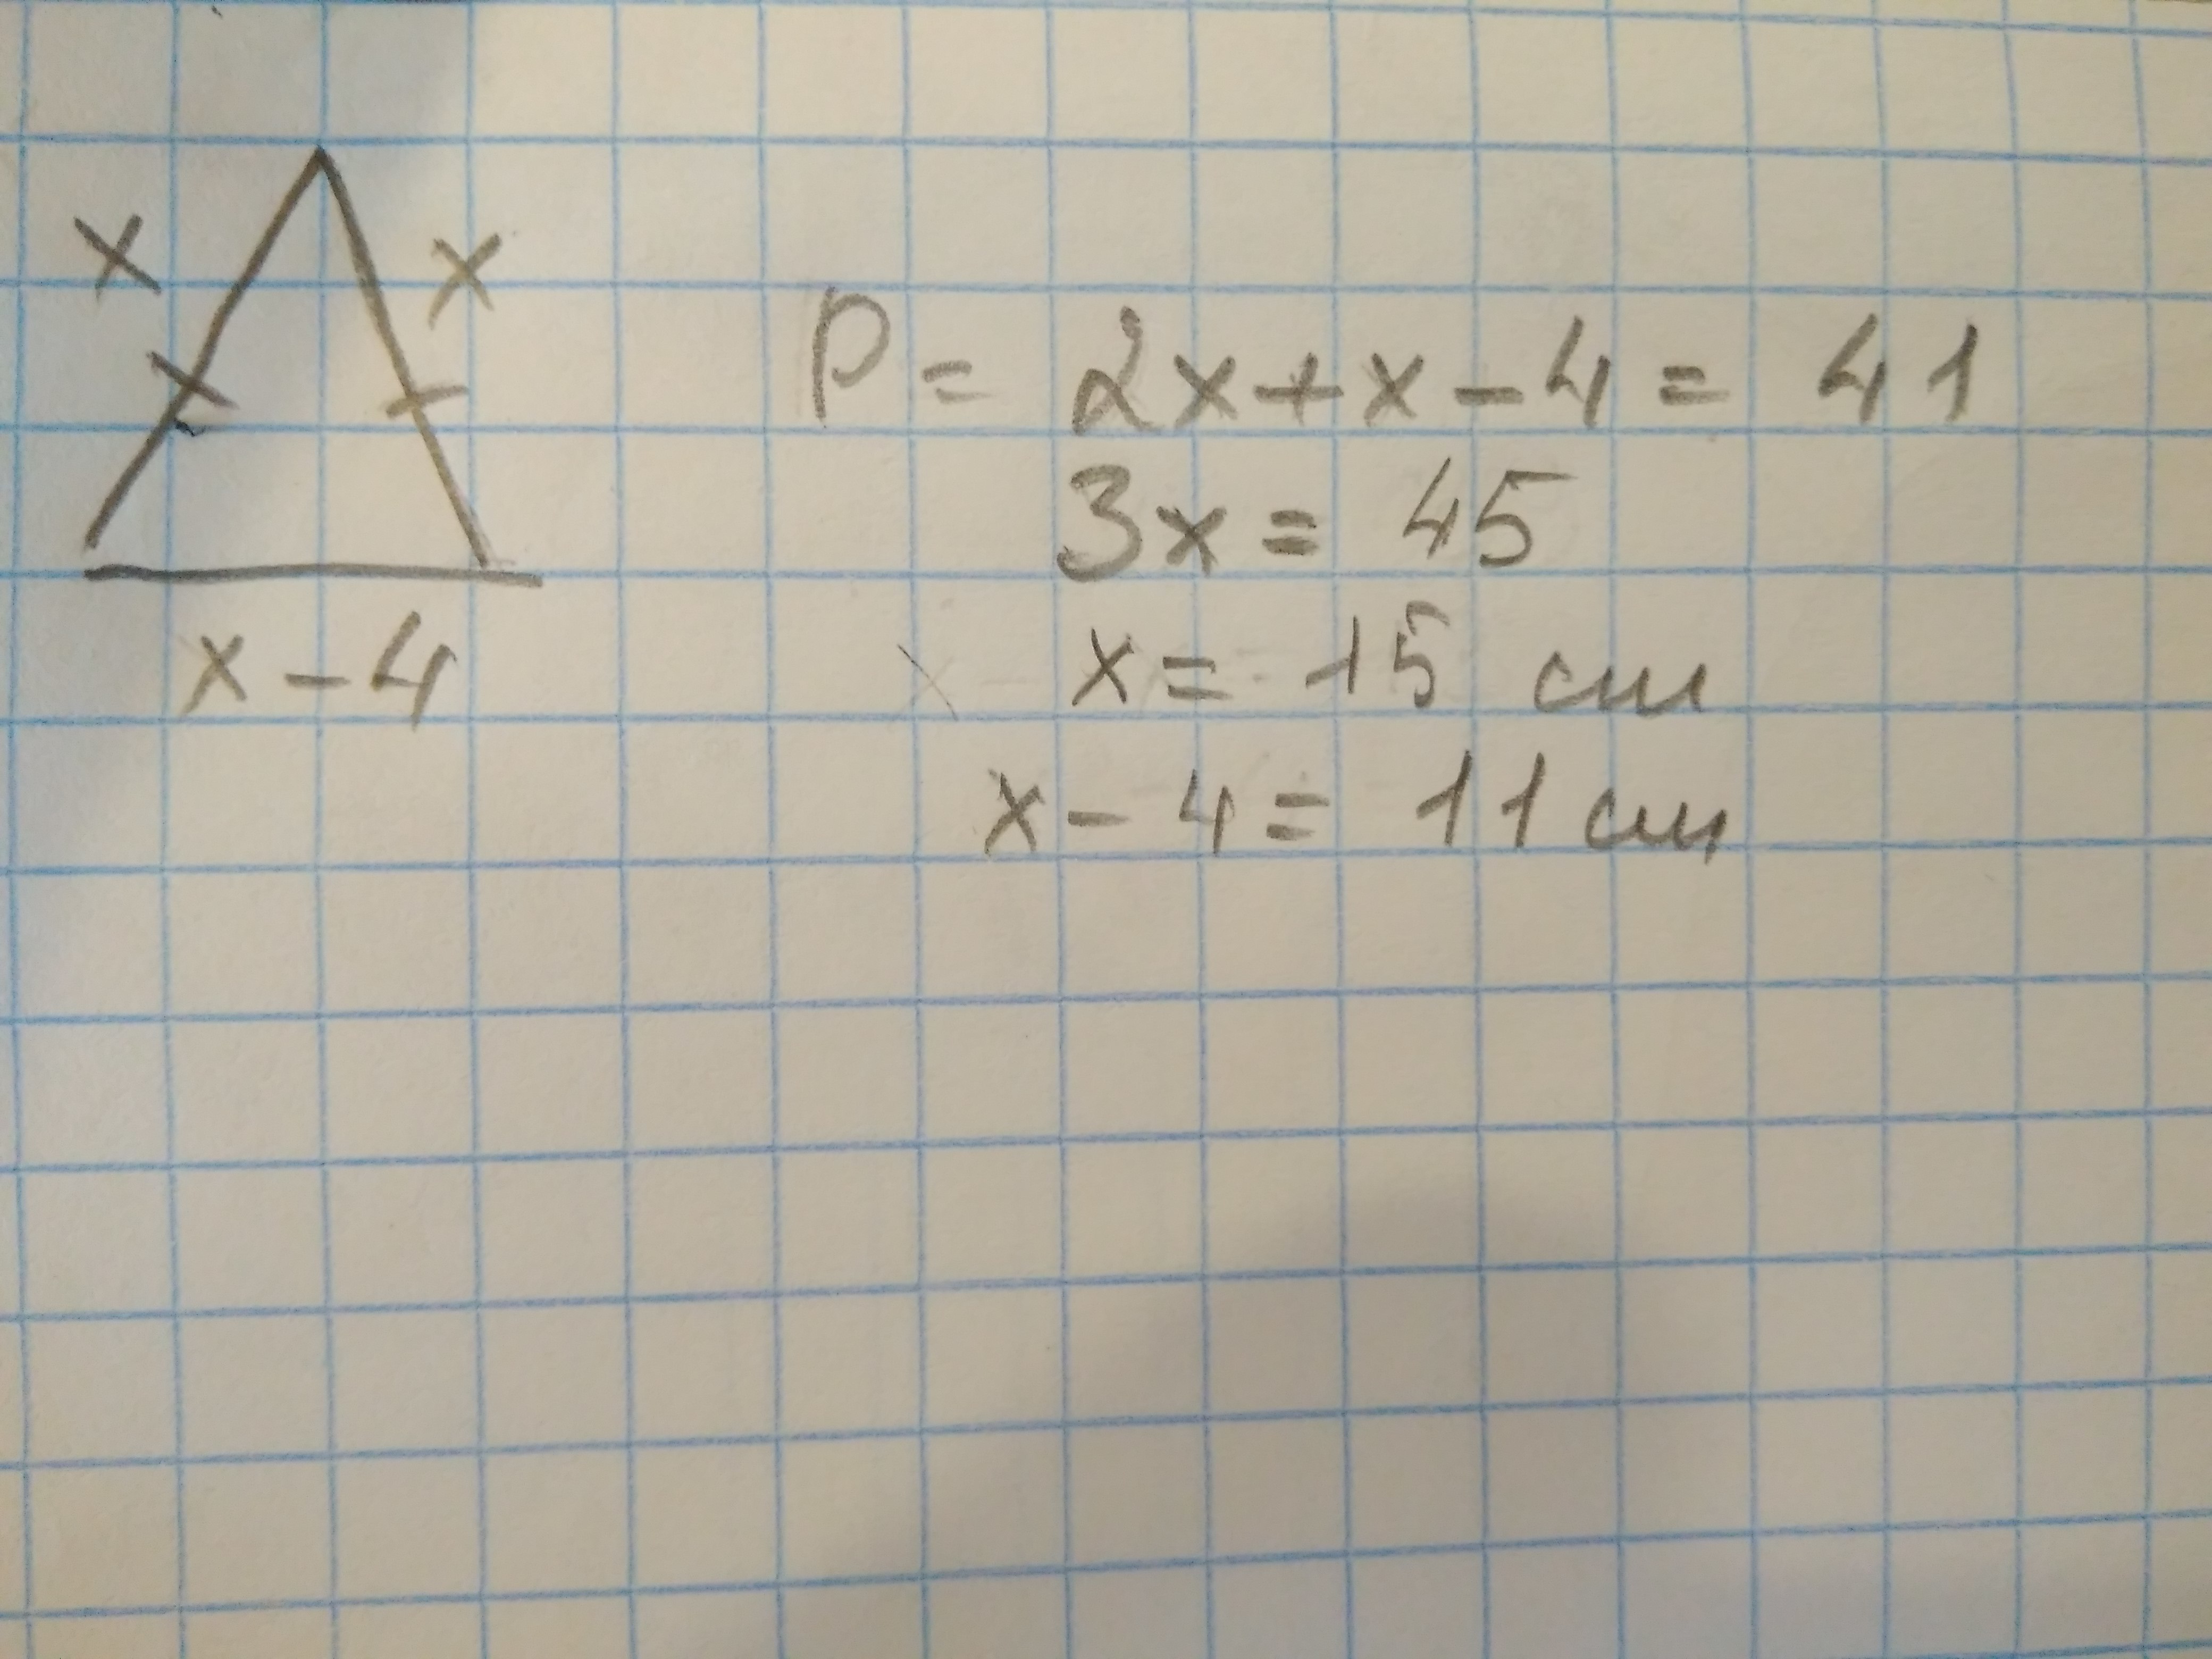 x x
x - 4
P = 2x + x - 4 = 41
3x = 45
x = 15 см
x - 4 = 11 см